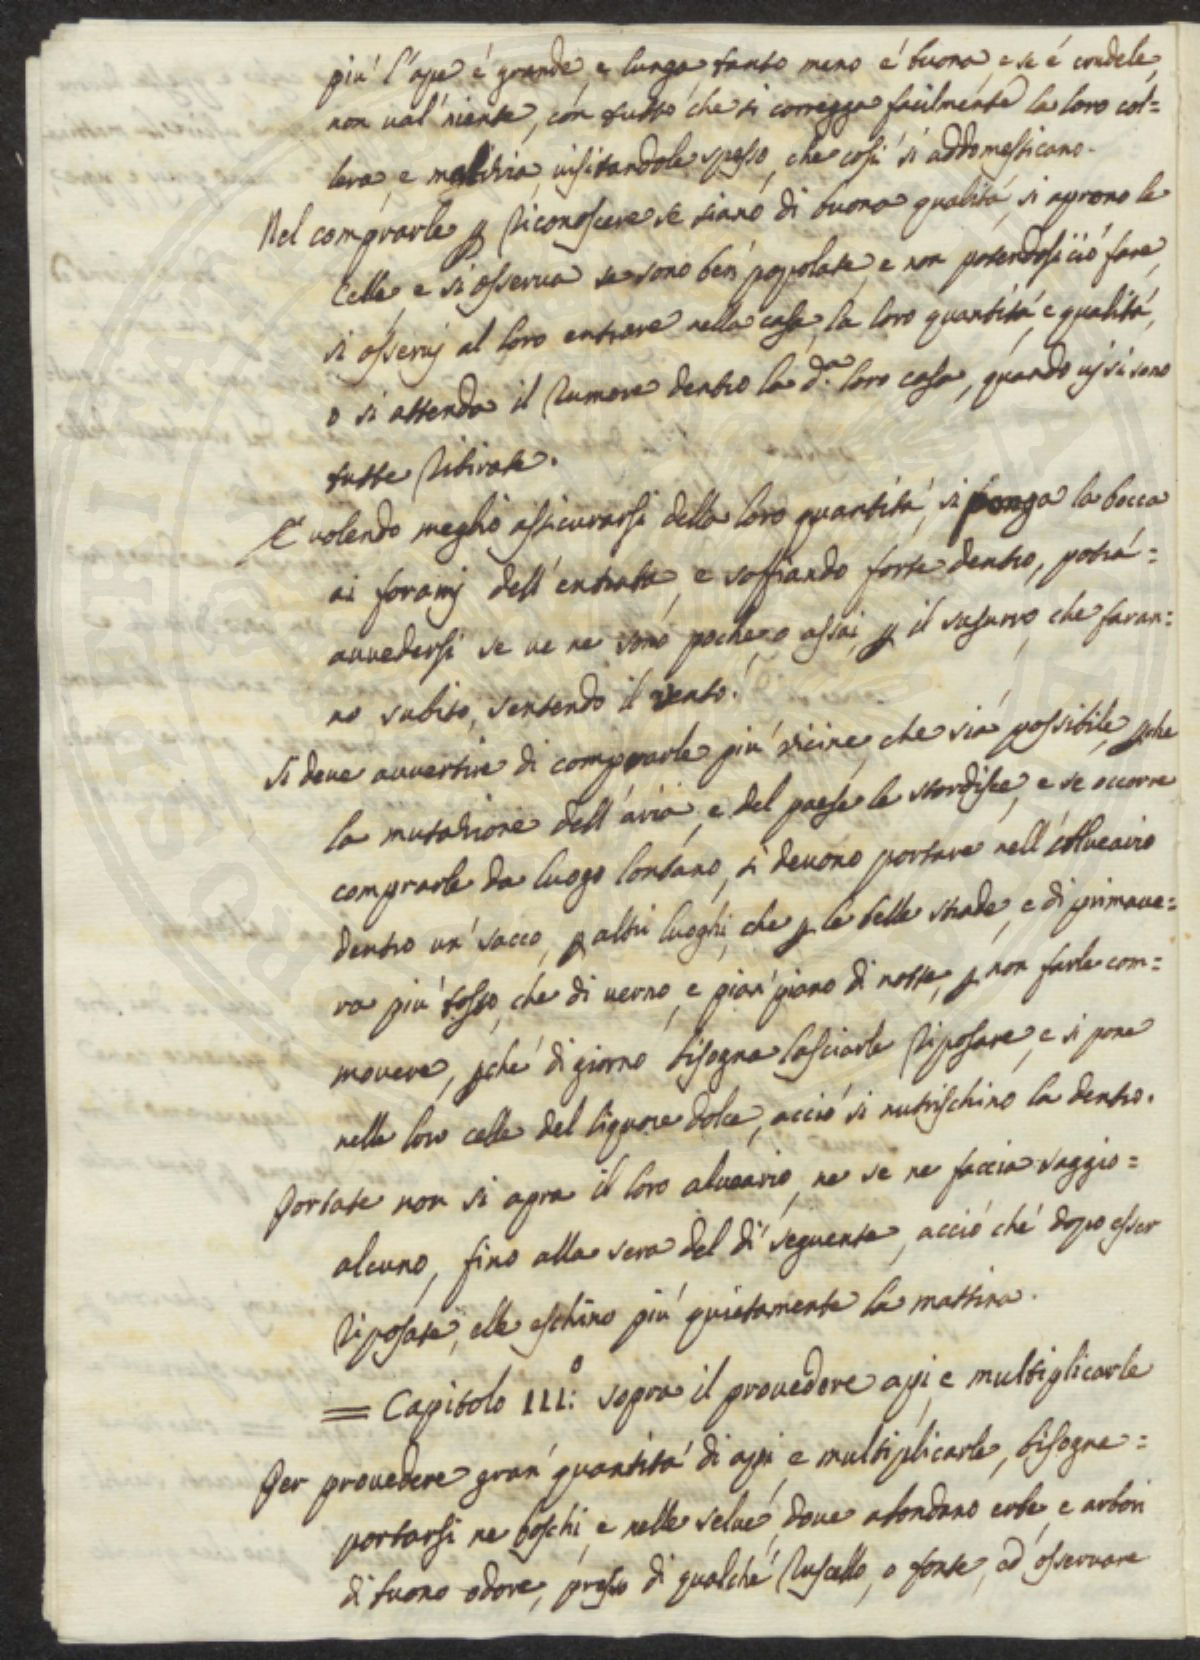 più l'ape è grande e lunga tanto meno è buona, e se è crudele,
non val' niente, con tutto che si corregga facilmente la loro col=
lera, e malitia, uisitandole spesso, che così si addomesticano.
Nel comprarle p riconoscere se siano di buona qualità, si aprono le
celle e si osserua se sono ben' popolate, e non potendosi ciò fare,
si osserui al loro entrare nella casa, la loro quantità, e qualità,
o si attenda il rumore dentro la d.a loro casa, quando ui si sono
tutte ritirate.
E uolendo meglio assicurarsi della loro quantità, si ponga la bocca
ai foramj dell'entrata, e soffiando forte dentro, potrà=
auuedersi se ue ne sono poche, o assai, p il susurro, che faran=
no subito, sentendo il vento.
Si deue auuertire di comprarle più uicine, che sia possibile, pche
la mutatione dell'aria, e del paese le stordisce, e se occorre
comprarle da luogo lontano, si deuono portare nell'alueario
dentro un' sacco, p altri luoghi, che p le belle strade, e di primaue=
ra più tosto, che di uerno, e pian' piano di notte, p non farle com=
mouere, pché di giorno bisogna lasciarle riposare, e si pone
nelle loro celle del liquore dolce, acciò si nutrischino la dentro.
Portate non si apra il loro alueario, ne se ne faccia saggio=
alcuno, fino alla sera del dì seguente, acciò ché dopo esser
riposate, elle eschino più quietamente la mattina.
= Capitolo III:o sopra il prouedere api, e multiplicarle
Per prouedere gran' quantità di api, e multiplicarle, bisogna=
portarsi ne boschi, e nelle selue, doue abondano erbe, e arbori
di buono odore, presso di qualché ruscello, o fonte, ed osseruare